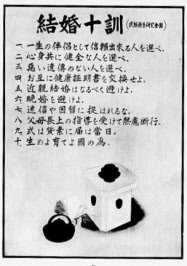 結婚十訓
一、一生の伴侶として信頼出来る人を選べ。
二、心身共に健全な人を選べ。
三、悪い遺傳のない人を選べ。
四、お互に健康証明書を交換せよ。
五、近親結婚はなるべく避けよ。
六、晩婚を避けよ。
七、迷信や因習に捉はれるな。
八、父母長上の指導を受けて熟慮断行。
九、式は質素に届は當日。
十、生めよ育てよ國の為。